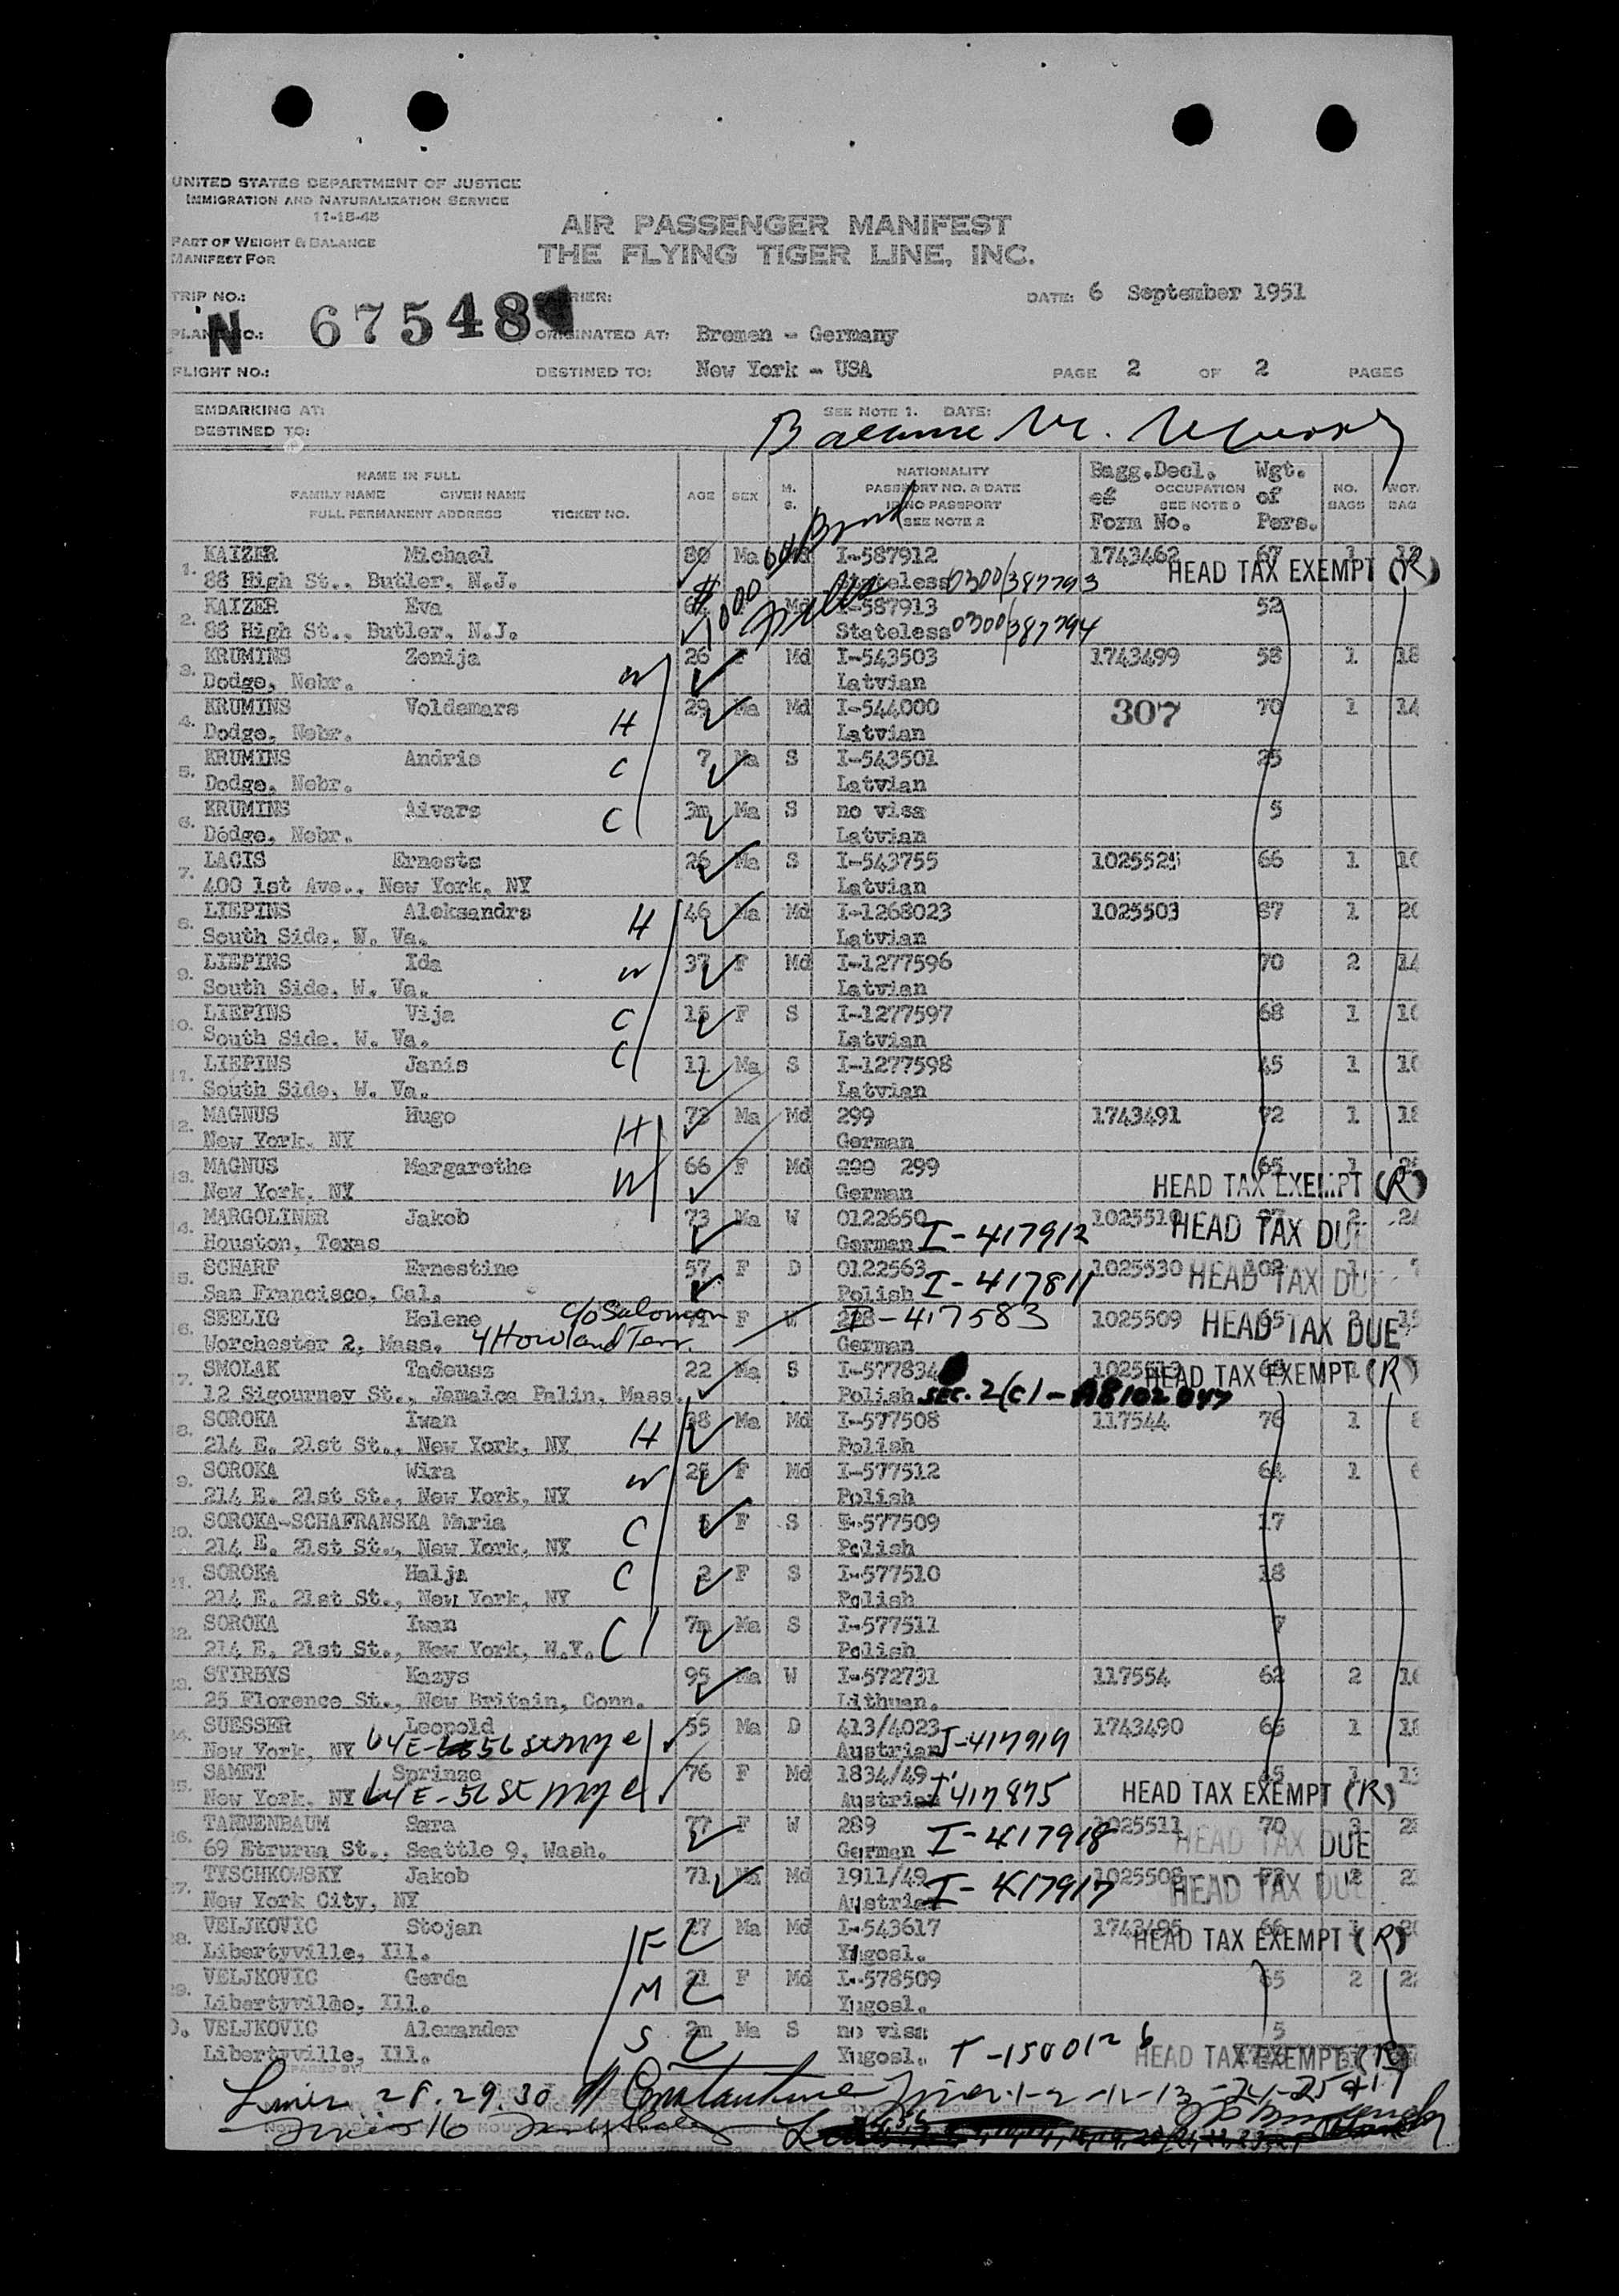 UNITED STATES DEPARTMENT OF JUSTICE
IMMIGRATION AND NATURALIZATION SERVICE
11-15-45
PART OF WEIGHT & BALANCE
MANIFEST FOR
AIR PASSENGER MANIFEST
THE FLYING TIGER LINE, INC.
TRIP NO.:
DATE: 6 September 1951
N 67548
ORIGINATED AT: Bremen - Germany
FLIGHT NO.: DESTINED TO: New York - USA PAGE 2 OF 2 PAGES
EMBARKING AT: SEE NOTE 1. DATE:
DESTINED TO:
NAME IN FULL
FAMILY NAME GIVEN NAME
FULL PERMANENT ADDRESS TICKET NO.
AGE SEX M. S.
NATIONALITY
PASSPORT NO. & DATE
IF NO PASSPORT
SEE NOTE 2
Bagg.Decl. Wgt.
of OCCUPATION SEE NOTE 3 of
Form No. Pers.
NO. BAGS WGT. BAG
1. KAIZER Michael 80 Ma Md I-587912 1743462 67 1
88 High St., Butler, N.J. Stateless 0300/387793 HEAD TAX EXEMPT (R)
2. KAIZER Eva Md I-587913 52
88 High St., Butler, N.J. Stateless 0300/387794
3. KRUMINS Zenija 26 F Md I-543503 1743499 58 1 18
Dodge, Nebr. W Latvian
4. KRUMINS Voldemars 29 Ma Md I-544000 307 70 1 14
Dodge, Nebr. H Latvian
5. KRUMINS Andris 7 Ma S I-543501 25
Dodge, Nebr. C Latvian
6. KRUMINS Aivars 3m Ma S no visa 5
Dodge, Nebr. C Latvian
7. LACIS Ernests 26 Ma S I-543755 1025525 66 1
400 1st Ave., New York, NY Latvian
8. LIEPINS Aleksandrs H 46 Ma Md I-1268023 1025503 87 1
South Side, W. Va. Latvian
9. LIEPINS Ida W 37 F Md I-1277596 70 2 14
South Side, W. Va. Latvian
10. LIEPINS Vija C 15 F S I-1277597 68 1
South Side, W. Va. Latvian
11. LIEPINS Janis C 11 Ma S I-1277598 45 1
South Side, W. Va. Latvian
12. MAGNUS Hugo 73 Ma Md 299 1743491 72 1 18
New York, NY H German
13. MAGNUS Margarethe 66 F Md 299 65 1
New York, NY W German HEAD TAX EXEMPT (R)
14. MARGOLINER Jakob 73 Ma W 0122650 1025519 2
Houston, Texas German I-417912 HEAD TAX DUE
15. SCHARF Ernestine 57 F D 0122563 1025530 102 1
San Francisco, Cal. Polish I-417811 HEAD TAX DUE
16. SEELIG Helene c/o Salomon F W I-417583 1025509 65
Worchester 2, Mass. 4 Howland Terr. German HEAD TAX DUE
17. SMOLAK Tadeusz 22 Ma S I-577834
12 Sigourney St., Jamaica Palin, Mass. Polish SEC. 2(c) - A8102047 HEAD TAX EXEMPT (R)
18. SOROKA Iwan 38 Ma Md I-577508 117544 76 1 8
214 E. 21st St., New York, NY H Polish
19. SOROKA Wira 25 F Md I-577512 64 1 6
214 E. 21st St., New York, NY W Polish
20. SOROKA-SCHAFRANSKA Maria 5 F S I-577509 17
214 E. 21st St., New York, NY C Polish
21. SOROKA Halja 2 F S I-577510 18
214 E. 21st St., New York, NY C Polish
22. SOROKA Iwan 7m Ma S I-577511 7
214 E. 21st St., New York, N.Y. C Polish
23. STIRBYS Kazys 95 Ma W I-572731 117554 62 2
25 Florence St., New Britain, Conn. Lithuan.
24. SUESSER Leopold 55 Ma D 413/4023 1743490 66 1 18
New York, NY 64 E-56 St NYC Austrian I-417919
25. SAMET Sprinze 76 F Md 1834/49 65 1
New York, NY 64 E-56 St NYC Austrian I-417875 HEAD TAX EXEMPT (R)
26. TANNENBAUM Sara 77 F W 289 1025511 70 3
69 Etrurua St., Seattle 9, Wash. German I-417918 HEAD TAX DUE
27. TYSCHKOWSKY Jakob 71 Ma Md 1911/49 1025508 2
New York City, NY Austrian I-417917 HEAD TAX DUE
28. VELJKOVIC Stojan 27 Ma Md I-543617 1743495 66 1
Libertyville, Ill. F Yugosl. HEAD TAX EXEMPT (R)
29. VELJKOVIC Gerda 21 F Md I-578509 65 2
Libertyville, Ill. M Yugosl.
30. VELJKOVIC Alexander 2m Ma S no visa 5
Libertyville, Ill. S Yugosl. T-1500126 HEAD TAX EXEMPT (R)
Lines 28.29.30 Constantine Lines 1-2-12-13-24-25
Lines 16